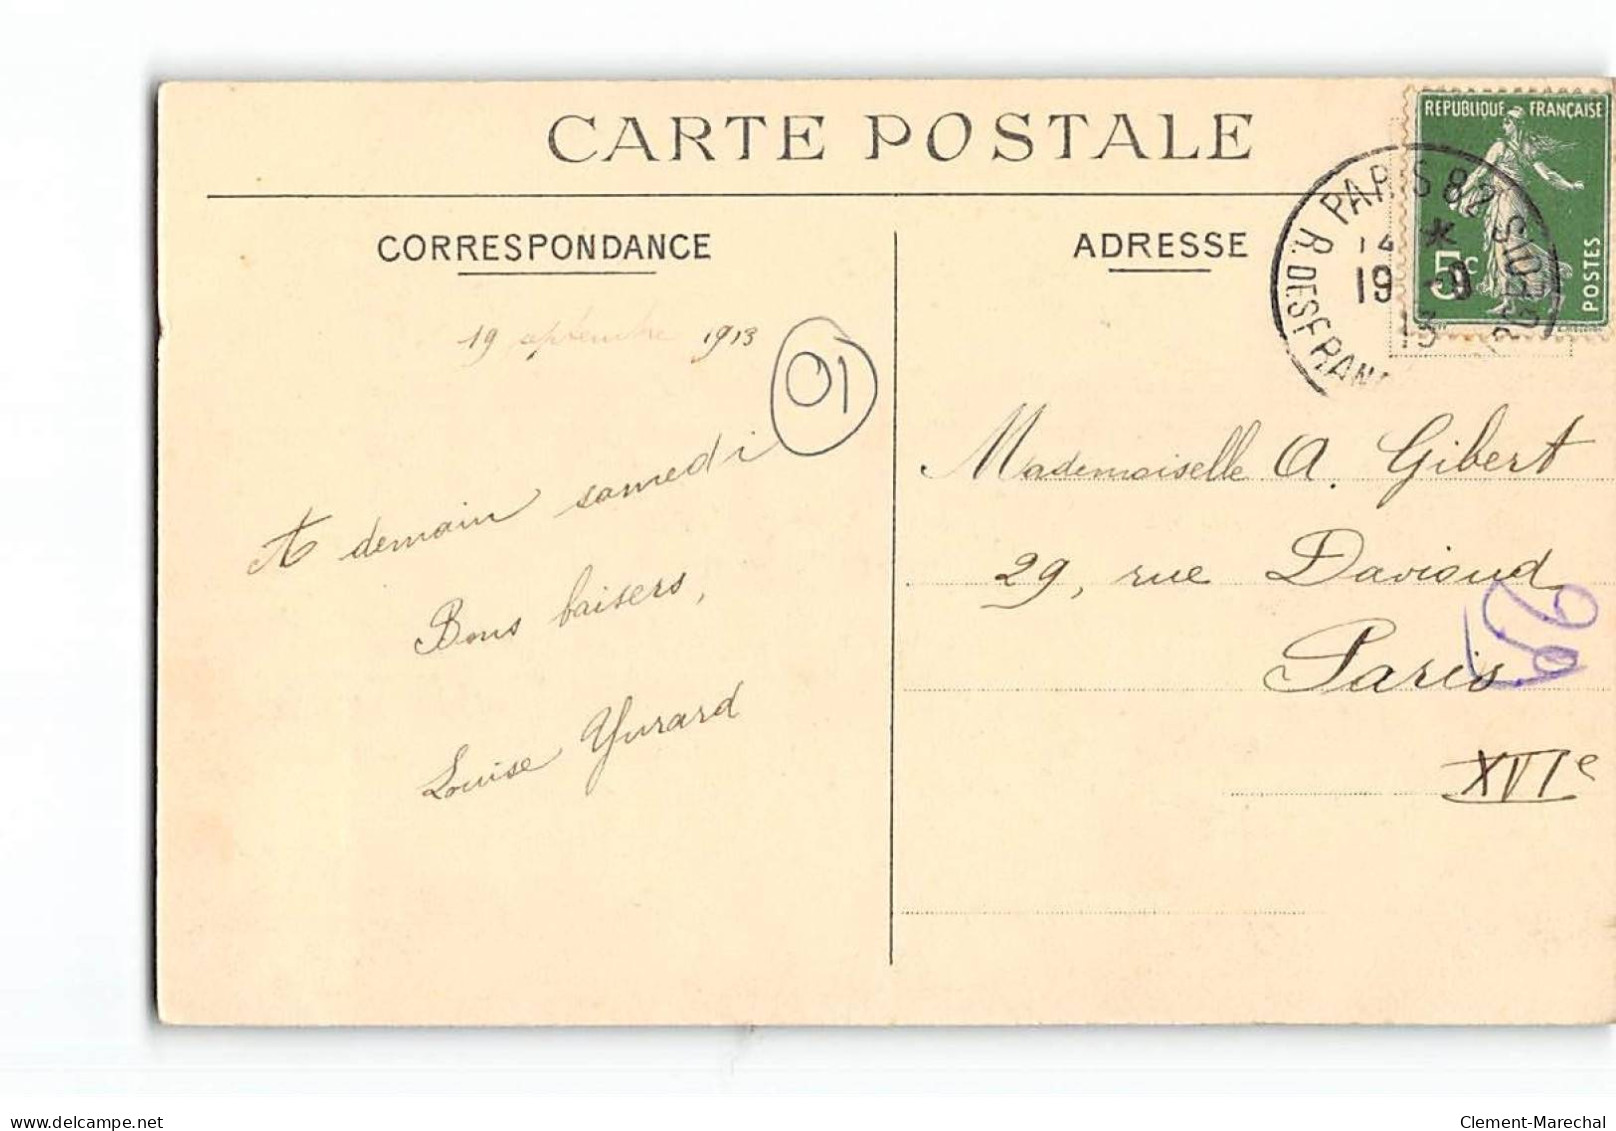 CARTE POSTALE
CORRESPONDANCE
19 septembre 1913
01
A demain samedi
Bons baisers,
Louise
ADRESSE
REPUBLIQUE FRANÇAISE
5c
POSTES
PARIS 82
R. DES FRANCS BOURGEOIS
14 *
19 -9
13
Mademoiselle A. Gibert
29, rue Davioud
Paris
XVIe
Clement-Marechal
delcampe.net